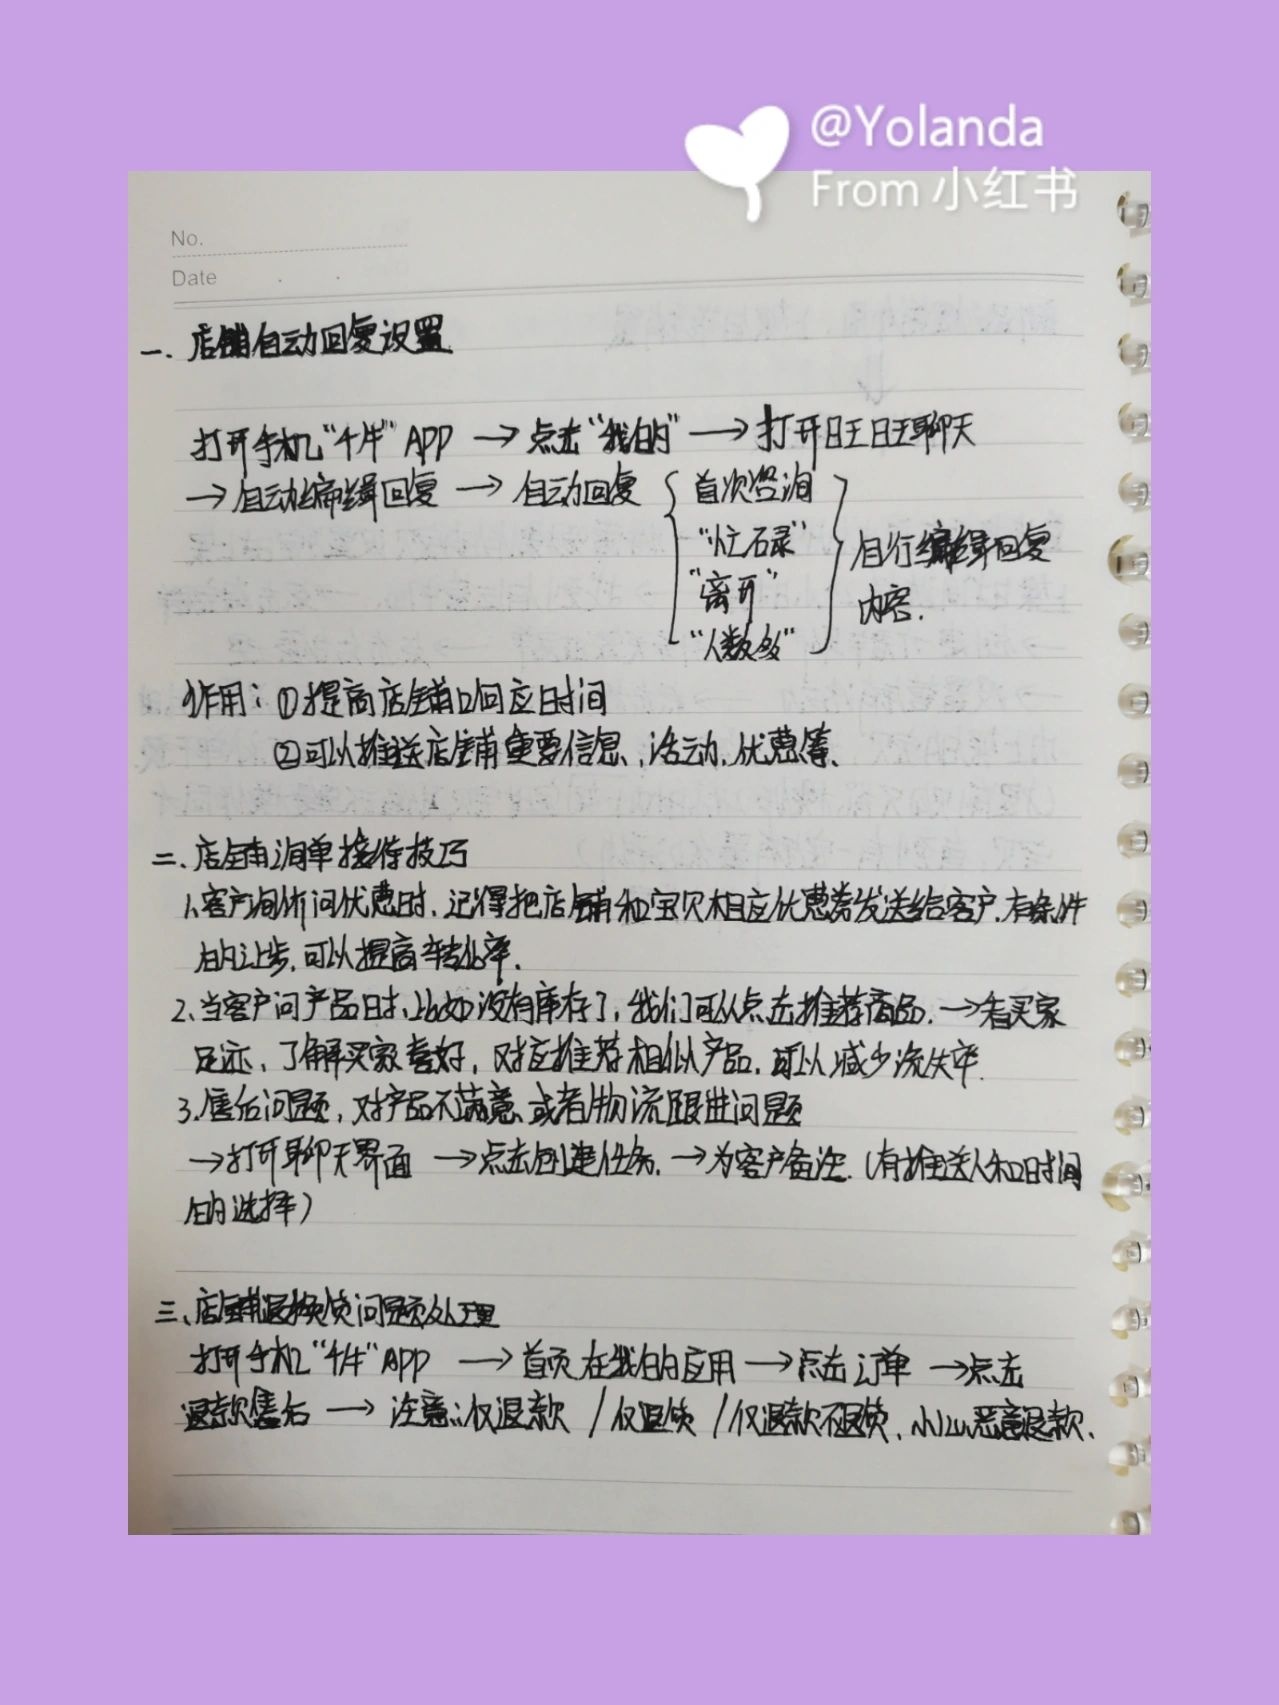 @Yolanda
From 小红书
No.
Date
一、店铺自动回复设置
打开手机“千牛”APP → 点击“我的” → 打开旺旺聊天
→ 自动编缉回复 → 自动回复 { 首次咨询
“忙碌”
“离开”
“人数多” } 自行编缉回复
内容.
作用：①提高店铺响应时间
②可以推送店铺重要信息、活动、优惠等、
二、店铺询单接待技巧
1、客户询价问优惠时，记得把店铺和宝贝相应优惠券发送给客户，有条件
的让步，可以提高转化率.
2、当客户问产品时，比如没有库存了，我们可以点击推荐商品. → 看买家
足迹，了解买家喜好，对应推荐相似产品，可以减少流失率.
3、售后问题，对产品不满意或者物流跟进问题
→ 打开聊天界面 → 点击创建任务. → 为客户备注.（有推送人和时间
的选择）
三、店铺退换货问题处理
打开手机“千牛”APP → 首页在我的应用 → 点击订单 → 点击
退款售后 → 注意：仅退款 / 仅退货 / 仅退款不退货，小心恶意退款、